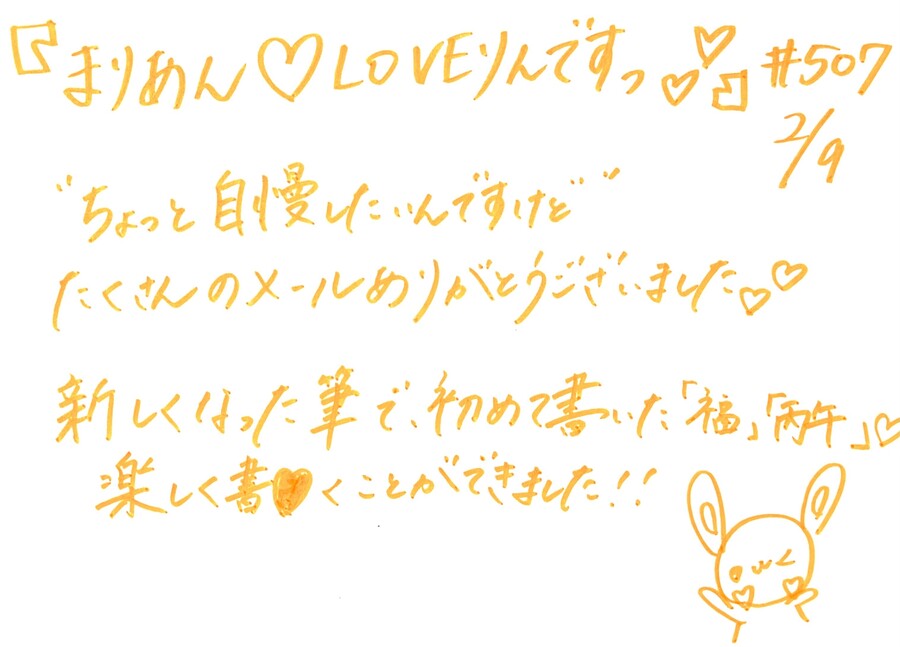 『まりあん♡LOVEりんですっ♡♡』 #507
2/9
"ちょっと自慢したいんですけど"
たくさんのメールありがとうございました♡♡
新しくなった筆で、初めて書いた「福」「丙午」♡
楽しく書♥くことができました!!